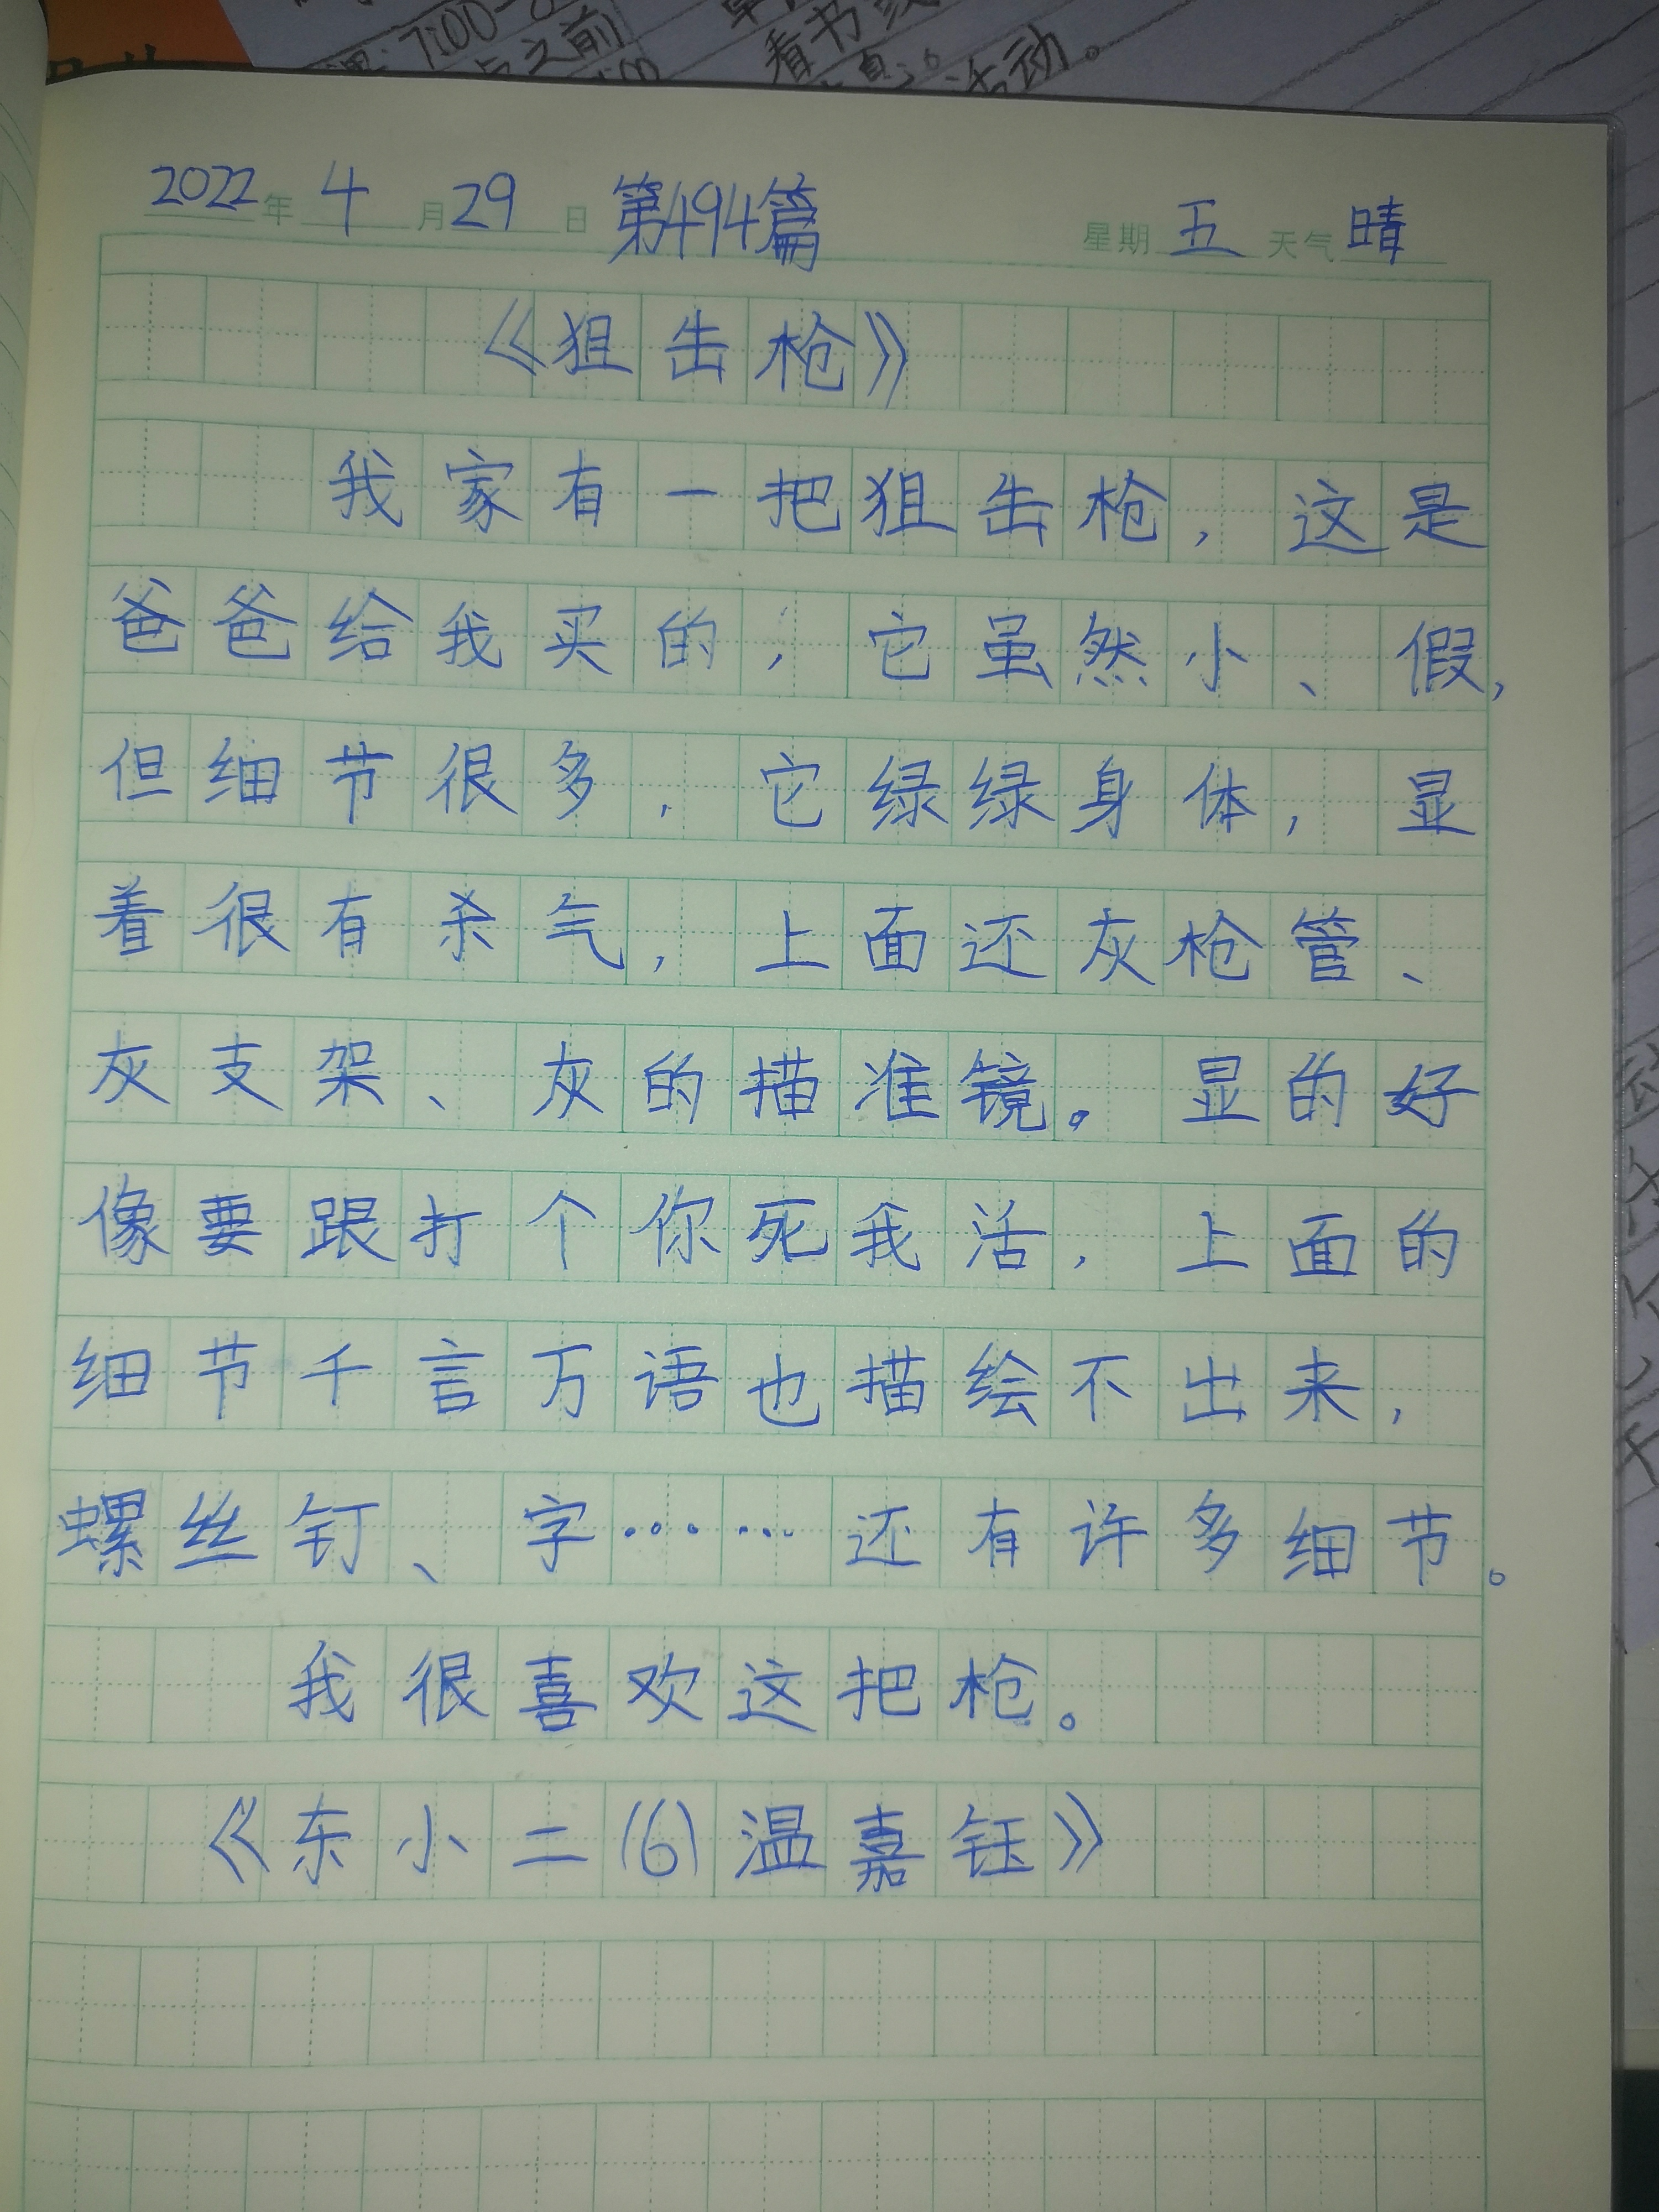 7:00-
之前
看书
活动。
2022年4月29日 第494篇 星期五 天气晴
《狙击枪》
我家有一把狙击枪，这是
爸爸给我买的，它虽然小、假，
但细节很多，它绿绿身体，显
着很有杀气，上面还灰枪管、
灰支架、灰的描准镜。显的好
像要跟打个你死我活，上面的
细节千言万语也描绘不出来，
螺丝钉、字……还有许多细节。
我很喜欢这把枪。
《东小二(6)温嘉钰》